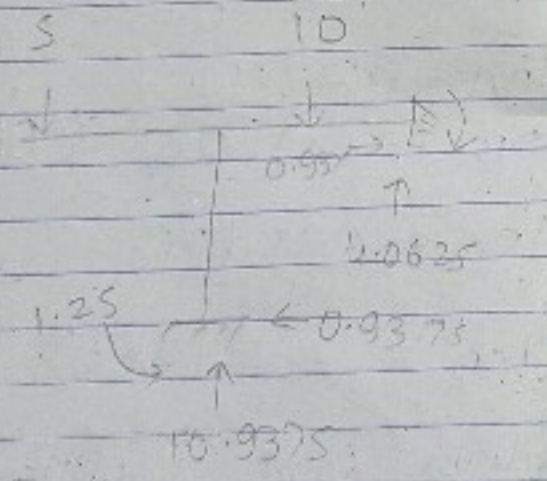 5 10
0.93
4.0625
1.25
0.9375
10.9375